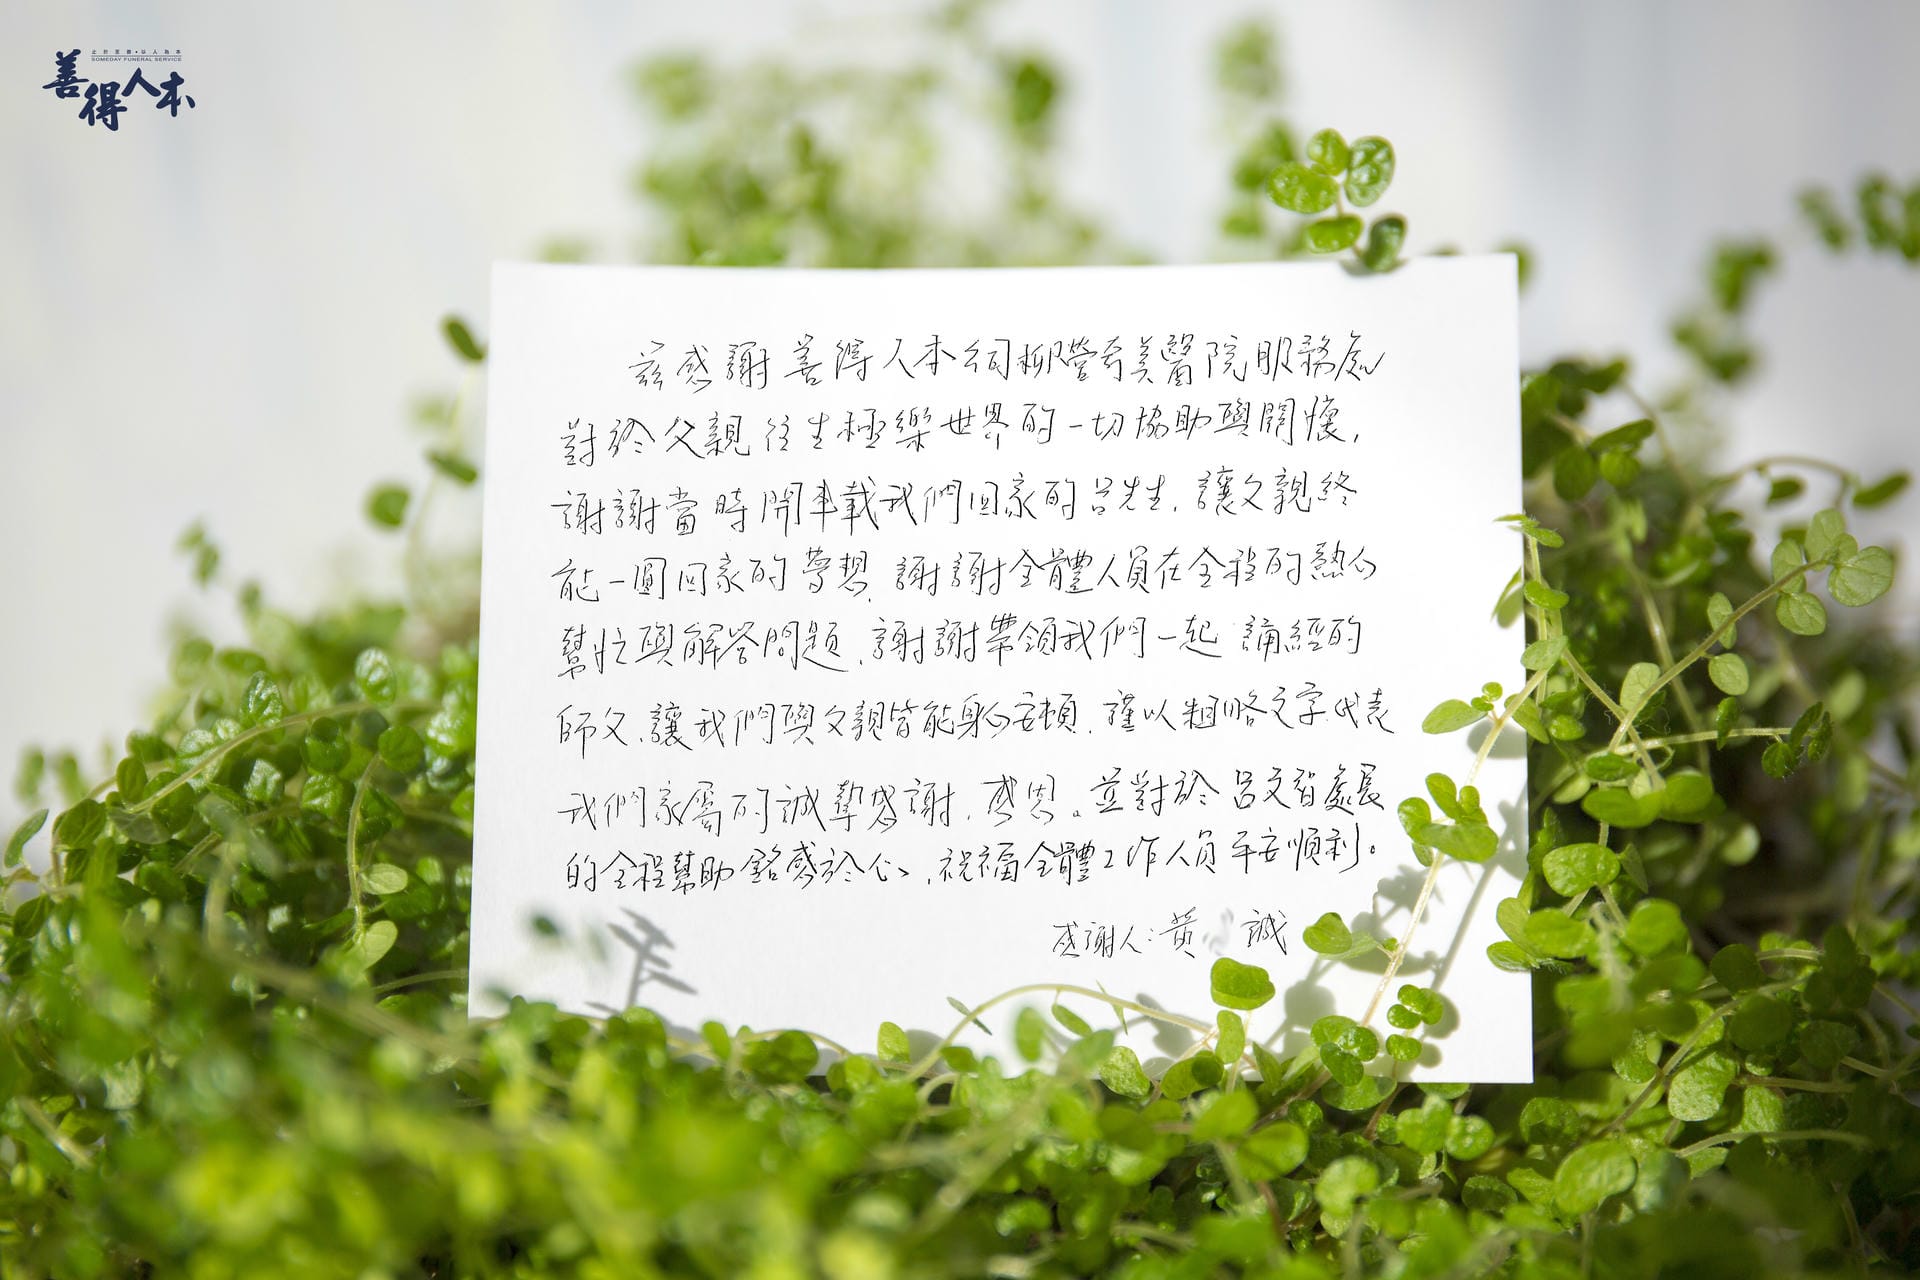 止於至善•以人為本
SOMEDAY FUNERAL SERVICE
善得人本
茲感謝善得人本公司柳營奇美醫院服務處
對於父親往生極樂世界的一切協助與關懷,
謝謝當時開車載我們回家的呂先生,讓父親終
能一圓回家的夢想,謝謝全體人員在全程的熱心
幫忙與解答問題,謝謝帶領我們一起誦經的
師父,讓我們與父親皆能身心安頓,謹以粗略文字代表
我們家屬的誠摯感謝,感恩。並對於呂文智處長
的全程幫助銘感於心,祝福全體工作人員平安順利。
感謝人:黃 誠